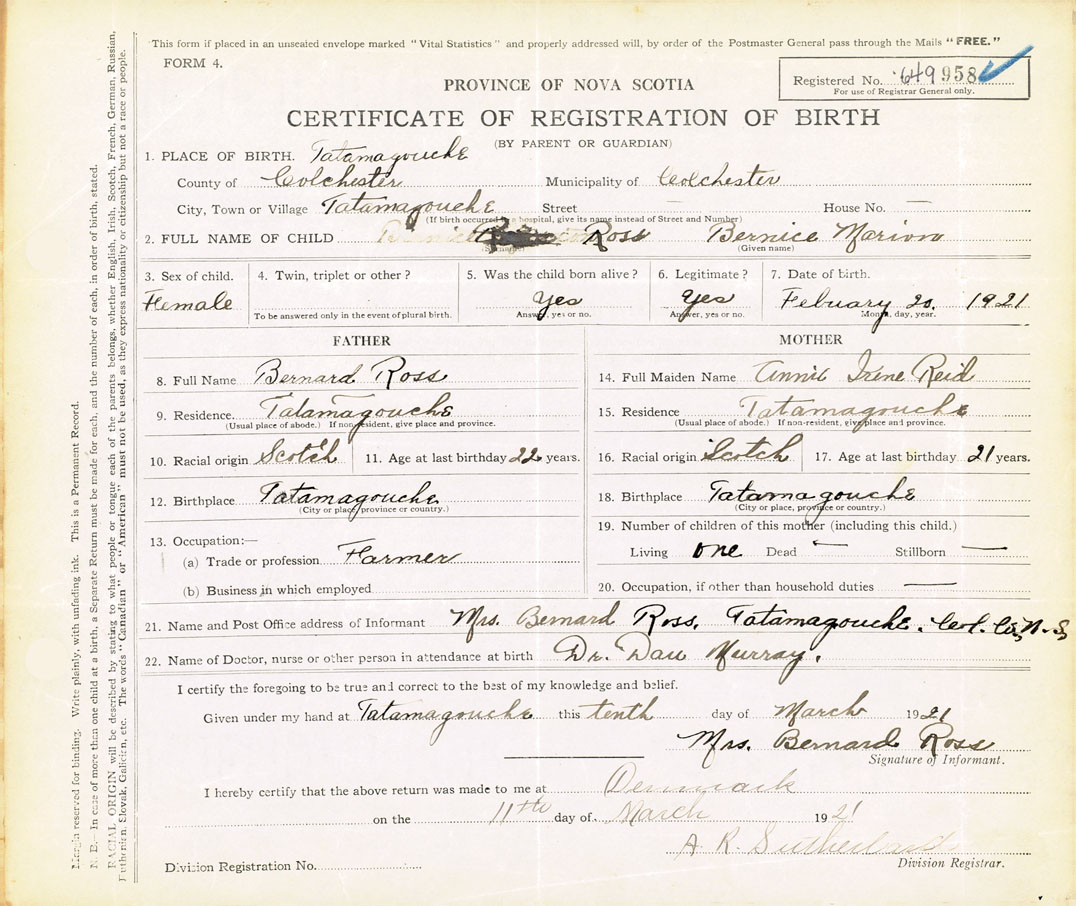 This form if placed in an unsealed envelope marked "Vital Statistics" and properly addressed will, by order of the Postmaster General pass through the Mails "FREE."
FORM 4.
Registered No. 649958
For use of Registrar General only.
PROVINCE OF NOVA SCOTIA
CERTIFICATE OF REGISTRATION OF BIRTH
(BY PARENT OR GUARDIAN)
1. PLACE OF BIRTH. Tatamagouche
County of Colchester Municipality of Colchester
City, Town or Village Tatamagouche Street — House No. —
(If birth occurred in a hospital, give its name instead of Street and Number)
2. FULL NAME OF CHILD Ross Bernice Marion
(Surname) (Given name)
3. Sex of child. 4. Twin, triplet or other? 5. Was the child born alive? 6. Legitimate? 7. Date of birth.
Female Yes Yes Febuary 20. 1921
To be answered only in the event of plural birth. Answer, yes or no. Answer, yes or no. Month, day, year.
FATHER MOTHER
8. Full Name Bernard Ross 14. Full Maiden Name Annie Irene Reid
9. Residence. Tatamagouche 15. Residence Tatamagouche
(Usual place of abode.) If non-resident, give place and province. (Usual place of abode.) If non-resident, give place and province.
10. Racial origin Scotch 11. Age at last birthday 22 years. 16. Racial origin Scotch 17. Age at last birthday 21 years.
12. Birthplace Tatamagouche 18. Birthplace Tatamagouche
(City or place, province or country.) (City or place, province or country.)
13. Occupation:— 19. Number of children of this mother (including this child.)
(a) Trade or profession Farmer Living one Dead — Stillborn —
(b) Business in which employed 20. Occupation, if other than household duties —
21. Name and Post Office address of Informant Mrs. Bernard Ross, Tatamagouche. Col. Co, N.S,
22. Name of Doctor, nurse or other person in attendance at birth Dr. Dan Murray.
I certify the foregoing to be true and correct to the best of my knowledge and belief.
Given under my hand at Tatamagouche this tenth day of March 1921
Mrs. Bernard Ross
Signature of Informant.
I hereby certify that the above return was made to me at Denmark
on the 11th day of March 1921
A. R. Sutherland
Division Registrar.
Division Registration No.
Margin reserved for binding. Write plainly, with unfading ink. This is a Permanent Record.
N. B.—In case of more than one child at a birth, a Separate Return must be made for each, and the number of each, in order of birth, stated.
RACIAL ORIGIN will be described by stating to what people or tongue each of the parents belongs, whether English, Irish, Scotch, French, German, Russian,
Ruthenian, Slovak, Galician, etc. The words "Canadian" or "American" must not be used, as they express nationality or citizenship but not a race or people.